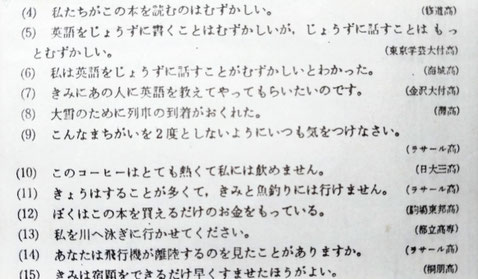 (4) 私たちがこの本を読むのはむずかしい。 (修道高)
(5) 英語をじょうずに書くことはむずかしいが, じょうずに話すことは もっ
とむずかしい。 (東京学芸大付高)
(6) 私は英語をじょうずに話すことがむずかしいとわかった。 (海城高)
(7) きみにあの人に英語を教えてやってもらいたいのです。 (金沢大付高)
(8) 大雪のために列車の到着がおくれた。 (灘高)
(9) こんなまちがいを2度としないようにいつも気をつけなさい。
(ラサール高)
(10) このコーヒーはとても熱くて私には飲めません。 (日大三高)
(11) きょうはすることが多くて, きみと魚釣りには行けません。 (ラサール高)
(12) ぼくはこの本を買えるだけのお金をもっている。 (駒場東邦高)
(13) 私を川へ泳ぎに行かせてください。 (都立高専)
(14) あなたは飛行機が離陸するのを見たことがありますか。 (ラサール高)
(15) きみは宿題をできるだけ早くすませたほうがよい。 (桐朋高)